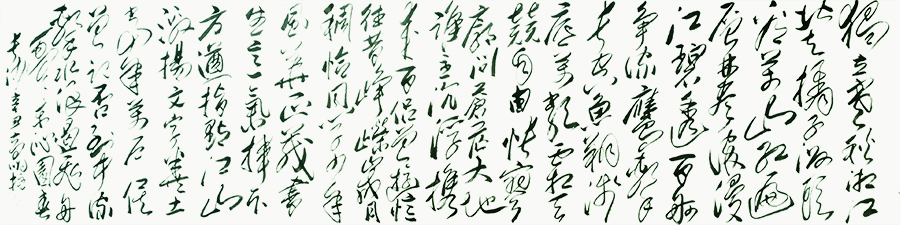 独立寒秋湘江
北去橘子洲头
看万山红遍
层林尽染漫
江碧透百舸
争流鹰击
长空鱼翔浅
底万类霜天
竞自由怅寥
廓问苍茫大地
谁主沉浮携
来百侣曾游忆
往昔峥嵘岁月
稠恰同学少年
风华正茂书
生意气挥斥
方遒指点江山
激扬文字粪土
当年万户侯
曾记否到中流
击水浪遏飞舟
沁园春
长沙